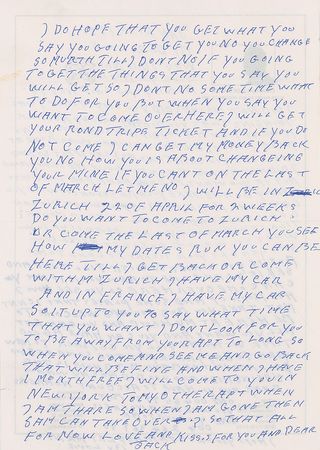 I DO HOPE THAT YOU GET WHAT YOU
SAY YOU GOING TO GET YOU NO YOU CHANGE
SO MURTH TILL I DONT NO IF YOU GOING
TO GET THE THINGS THAT YOU SAY YOU
WILL GET SO I DONT NO SOME TIME WHAT
TO DO FOR YOU BUT WHEN YOU SAY YOU
WANT TO COME OVER HERE I WILL GET
YOUR ROND TRIPS TICKET AND IF YOU DO
NOT COME I CAN GET MY MONEY BACK
YOU NO HOW YOU IS ABOUT CHANGEING
YOUR MINE IF YOU CANT ON THE LAST
OF MARCH LET ME NO I WILL BE IN
ZURICH 22 OF APRIL FOR 2 WEEKS
DO YOU WANT TO COME TO ZURICH
OR COME THE LAST OF MARCH YOU SEE
HOW MY DATES RUN YOU CAN BE
HERE TILL I GET BACK OR COME
WITH M ZURICH I HAVE MY CAR
AND IN FRANCE I HAVE MY CAR
SO IT UP TO YOU TO SAY WHAT TIME
THAT YOU WANT I DONT LOOK FOR YOU
TO BE AWAY FROM YOUR APT TO LONG SO
WHEN YOU COME AND SEE ME AND GO BACK
THAT WILL BE FINE AND WHEN I HAVE
1 MONTH FREE I WILL COME TO YOU IN
NEW YORK TO MY OTHER APT WHEN
I AM THARE SO WHEN I AM GONE THEN
SAM CAN TAKE OVER SO THAT ALL
FOR NOW LOVE AND KISS FOR YOU AND DEAR
JACK